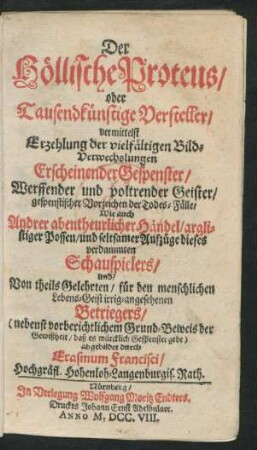 Der
Höllische Proteus/
oder
Tausendkünstige Versteller/
vermittelst
Erzehlung der vielfältigen Bild-
Verwechslungen
Erscheinender Gespenster/
Werffender und poltrender Geister/
gespenstischer Vorzeichen der Todes-Fälle/
Wie auch
Andrer abentheurlicher Händel/ argli-
stiger Possen/ und seltsamer Aufzüge dieses
verdammten
Schauspielers/
und/
Von theils Gelehrten/ für den menschlichen
Lebens-Geist irrig-angesehenen
Betriegers/
(nebenst vorberichtlichem Grund-Beweis der
Gewißheit/ daß es würcklich Gespenster gebe)
abgebildet durch
Erasmum Francisci/
Hochgräfl. Hohenloh-Langenburgis. Rath.
Nürnberg/
In Verlegung Wolfgang Moritz Endters.
Druckts Johann Ernst Adelbulner.
ANNO M. DCC. VIII.